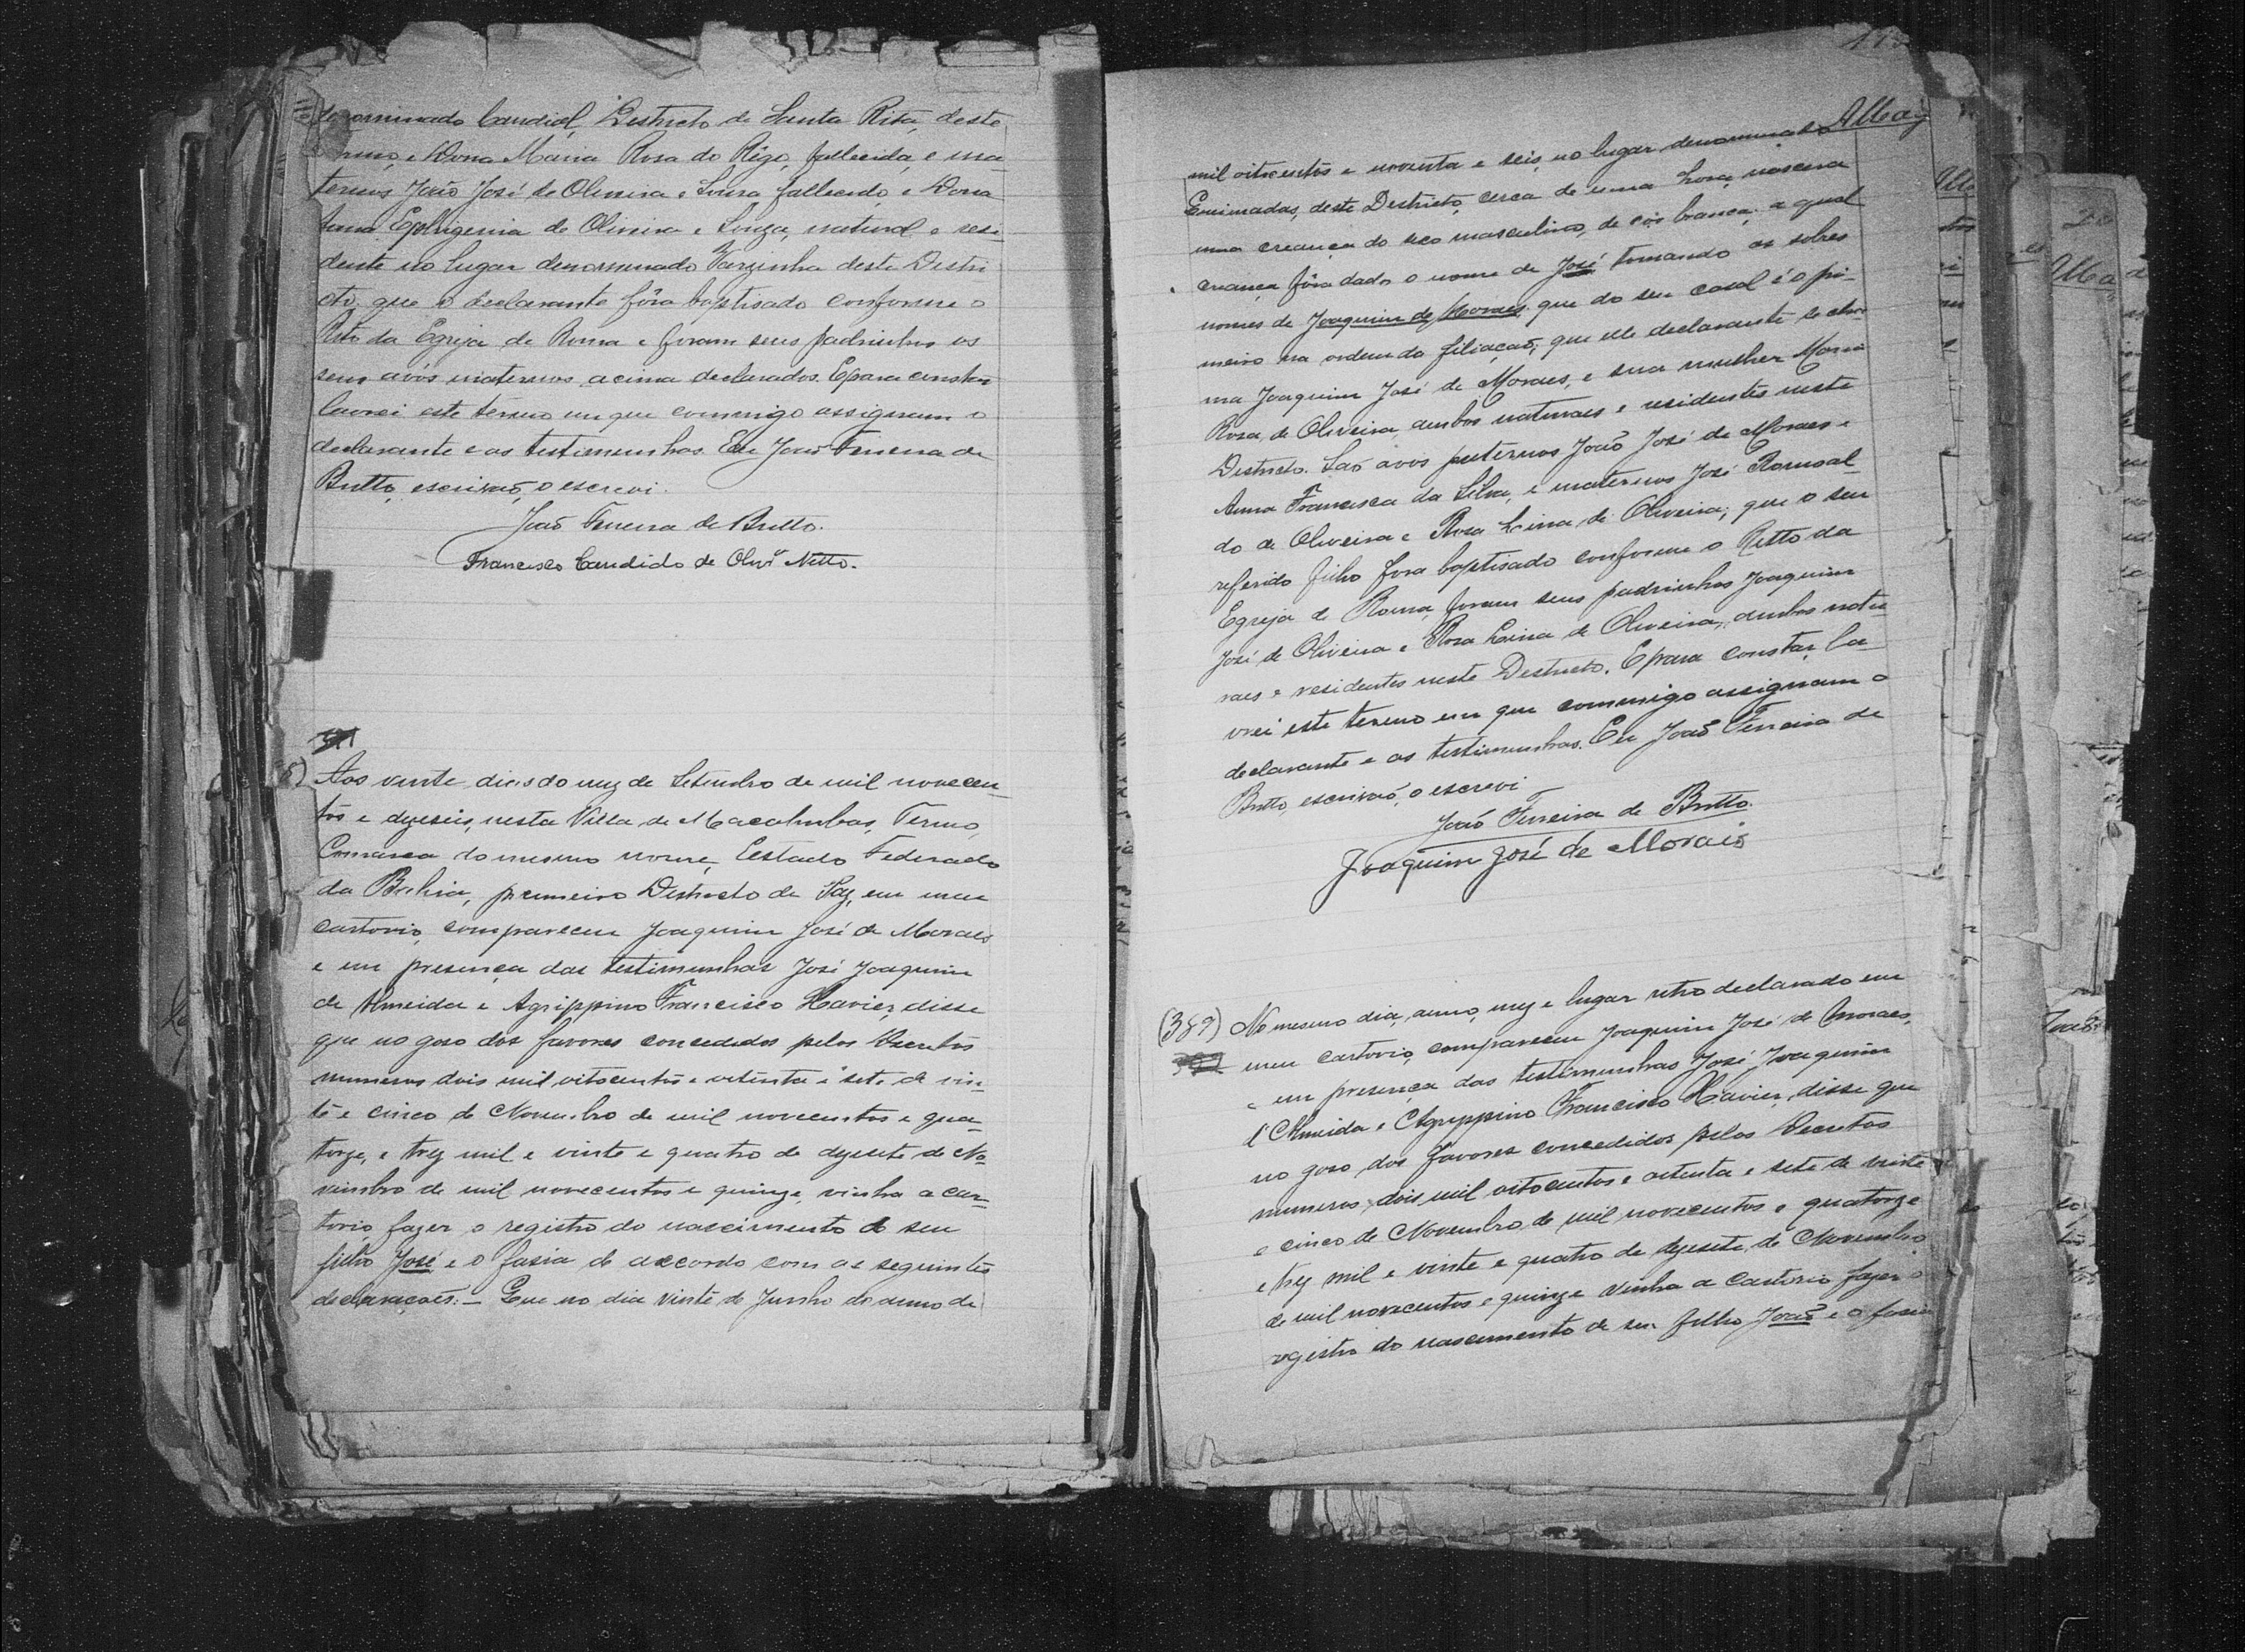 denominado Caudial, Destricto de Santa Rita, deste
Termo, e Dona Maria Rosa do Rêgo, fallecida, e ma-
ternos João José de Oliveira e Sousa fallecido, e Dona
Anna Ephigenia de Oliveira e Souza, natural e resi-
dente no lugar denominado Varginha deste Distri
cto, que o declarante fôra baptisado conforme o
Rito da Egreja de Roma e foram seus padrinhos os
seus avós maternos acima declarados. E para constar
lavrei este termo em que commigo assignam o
declarante e as testimunhas. Eu João Ferreira de
Britto, escrivão, o escrevi.
João Ferreira de Britto.
Francisco Candido de Olivrª Netto.
8) Aos vinte dias do mez de Setembro de mil novecen-
tos e dezeseis, nesta Villa de Macahubas, Termo,
Comarca do mesmo nome, Eestado Federado
da Bahia, primeiro Districto de Paz, em meu
cartorio, compareceu Joaquim José de Moraes
e em presença das testimunhas José Joaquim
de Almeida e Agrippino Francisco Xavier, disse
que no goso dos favores concedidos pelos Decretos
numeros dois mil oitocentos e oitenta e sete de vin-
te e cinco de Novembro de mil novecentos e qua-
torze, e trez mil e vinte e quatro de dezesete de No-
vembro de mil novecentos e quinze, vinha a car-
torio fazer o registro do nascimento de seu
filho José e o fasia de accordo com as seguintes
declaraçoẽs: - Que no dia vinte de Junho do anno de
mil oitocentos e noventa e seis, no lugar denominado
Queimadas, deste Destricto, cerca de uma hora, nascera
uma creança do seco masculino, de côr branca; a qual
creança fôra dado o nome de José tomando os sobres
nomes de Joaquim de Moraes; que do seu casal é o pri-
meiro na ordem da filiação; que elle declarante se cha-
ma Joaquim José de Moraes, e sua mulher Maria
Rosa de Oliveira, ambos naturaes e residentes neste
Destricto. Saõ avós paternos João José de Moraes e
Anna Francisca da Silva, e maternos José Romoal-
do de Oliveira e Rosa Lina de Oliveira; que o seu
referido filho fora baptisado conforme o Ritto da
Egreja de Roma, foram seus padrinhos Joaquim
José de Oliveira e Rosa Lina de Oliveira, ambos natu-
raes e residentes neste Destricto. E para constar, la-
vrei este termo em que commigo assignam o
declarante e as testimunhas. Eu João Ferreira de
Britto, escrivaõ, o escrevi
João Ferreira de Britto.
Joaquim José de Morais
(389) No mesmo dia, anno, mez e lugar retro declarado em
meu cartorio, compareceu Joaquim José de Moraes,
e em presença das testimunhas José Joaquim
d'Almeida e Agrippino Francisco Xavier, disse que
no goso dos favores concedidos pelos Decretos
numeros dois mil oitocentos e oitenta e sete de vinte
e cinco de Novembro de mil novecentos e quatorze
e trez mil e vinte e quatro de dezesete de Novembro
de mil novecentos e quinze vinha a Cartorio fazer o
registro do nascimento de seu filho João e o fasia